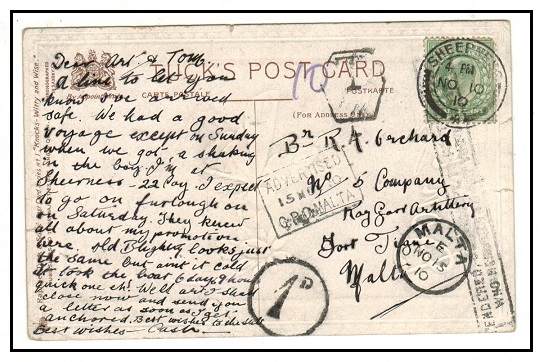 Dear Art & Tom
A line to let you
know we arrived
safe. We had a good
voyage except on Sunday
when we got a shaking
in the bay I'm at
Sheerness - 22 Coy I expect
to go on furlough on
on Saturday. They knew
all about my promotion
here. Old Blighty looks just
the same but aint it cold
it took the boat 6 days
quick one eh! Well art I shall
close now and send you
a letter as soon as I get
anchored. Best wishes to the
best wishes - Cash
TUCK'S POST CARD
CARTE POSTALE
POSTKARTE
(For Address Only)
By Appointment
"Knocks-Witty and Wise."
10
T
SHEERNESS
4 PM
NO 10
10
Br R. A. Orchard
No 5 Company
Roy Gar Artillery
Fort Tigne
Malta
ADVERTISED
15 NO 10
G.P.O. MALTA
MALTA
E
NO 15
10
1D